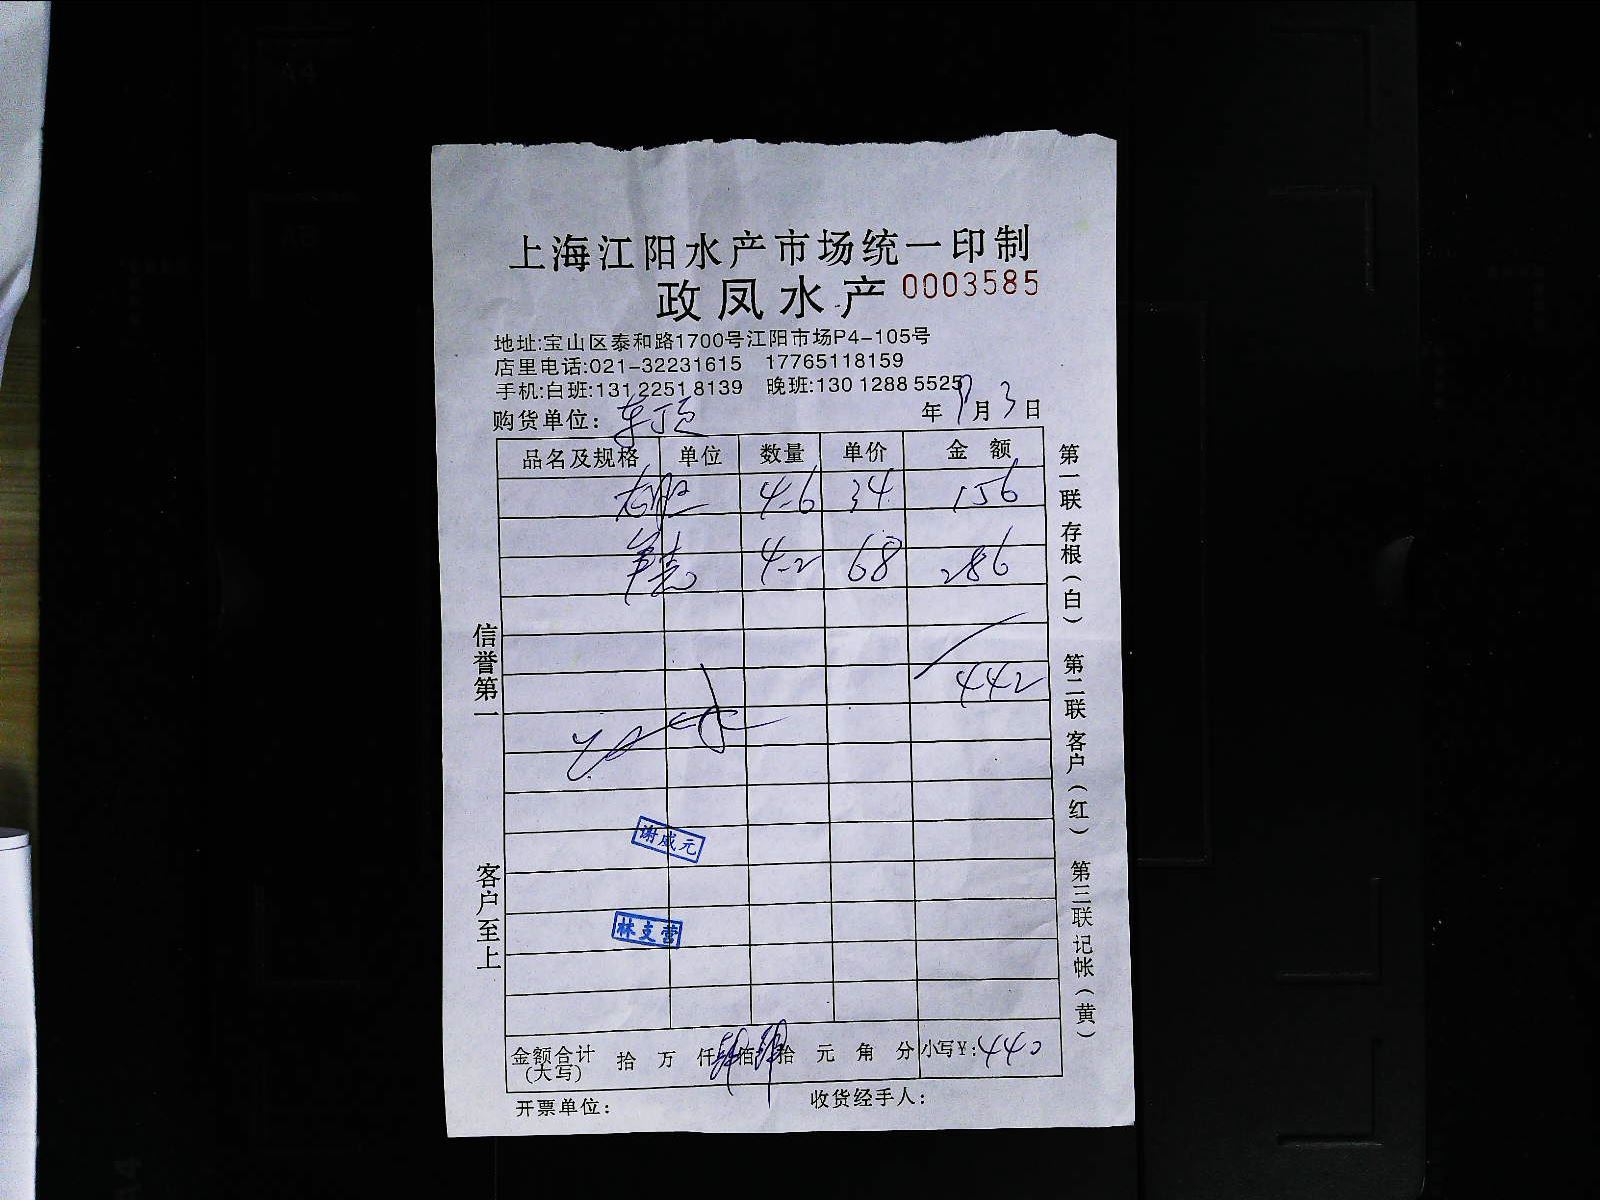 上海江阳水产市场统一印制
政凤水产 0003585
地址:宝山区泰和路1700号江阳市场P4-105号
店里电话:021-32231615 17765118159
手机:白班:131 2251 8139 晚班:130 1288 5525
购货单位: 年 月 3 日
品名及规格 单位 数量 单价 金额
4-6 34 156
4-2 68 286
442
谢成元
林支营
金额合计(大写) 拾 万 仟 肆 佰 肆 拾 元 角 分 小写¥: 440
开票单位: 收货经手人:
信誉第一
客户至上
第一联存根(白)
第二联客户(红)
第三联记帐(黄)